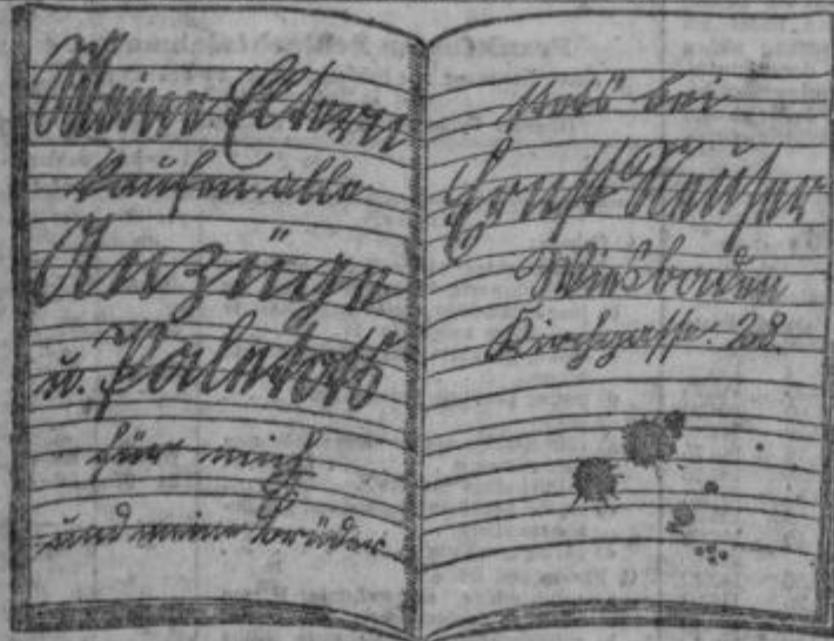 Meine Eltern
kaufen alle
Anzüge
u. Paletots
für mich
und meine Brüder
stets bei
Ernst Neuser
Wiesbaden
Kirchgasse 28.